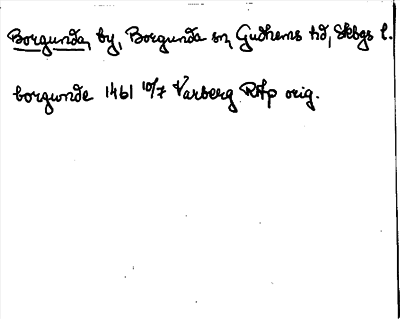 Borgunda, by, Borgunda sn, Gudhems hd, Skbgs l.
borgwnde 1461 10/7 Varberg RAp orig.